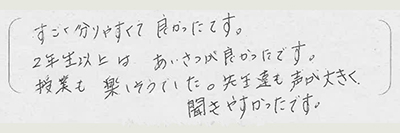 すごく分りやすくて良かったです。
2年生以上は あいさつが良かったです。
授業も 楽しそうでした。先生達も声が大きく、
聞きやすかったです。